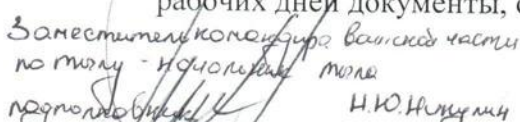 рабочих дней документы, с
Заместитель командира воинской части
по тылу - начальник тыла
подполковник Н.Ю.